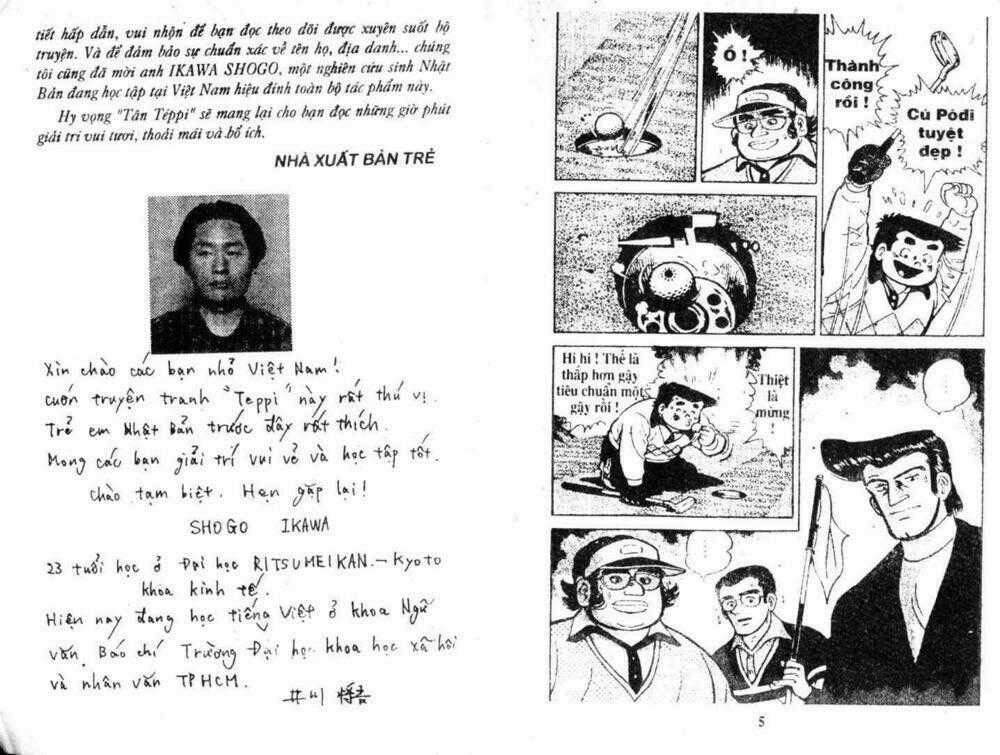 tiết hấp dẫn, vui nhộn để bạn đọc theo dõi được xuyên suốt bộ
truyện. Và để đảm bảo sự chuẩn xác về tên họ, địa danh... chúng
tôi cũng đã mời anh IKAWA SHOGO, một nghiên cứu sinh Nhật
Bản đang học tập tại Việt Nam hiệu đính toàn bộ tác phẩm này.
Hy vọng "Tân Téppi" sẽ mang lại cho bạn đọc những giờ phút
giải trí vui tươi, thoải mái và bổ ích.
NHÀ XUẤT BẢN TRẺ
Xin chào các bạn nhỏ Việt Nam!
cuốn truyện tranh "Teppi" này rất thú vị.
Trẻ em Nhật Bản trước đây rất thích.
Mong các bạn giải trí vui vẻ và học tập tốt.
chào tạm biệt. Hẹn gặp lại!
SHOGO IKAWA
23 tuổi học ở Đại học RITSUMEIKAN.-Kyoto
khoa kinh tế.
Hiện nay đang học tiếng Việt ở khoa Ngữ
văn Báo chí Trường Đại học khoa học xã hội
và nhân văn TPHCM.
井川
Ố !
Thành
công
rồi !
Cú Pódi
tuyệt
đẹp !
Hi hi ! Thế là
thấp hơn gậy
tiêu chuẩn một
gậy rồi !
Thiệt
là
mừng
!
5